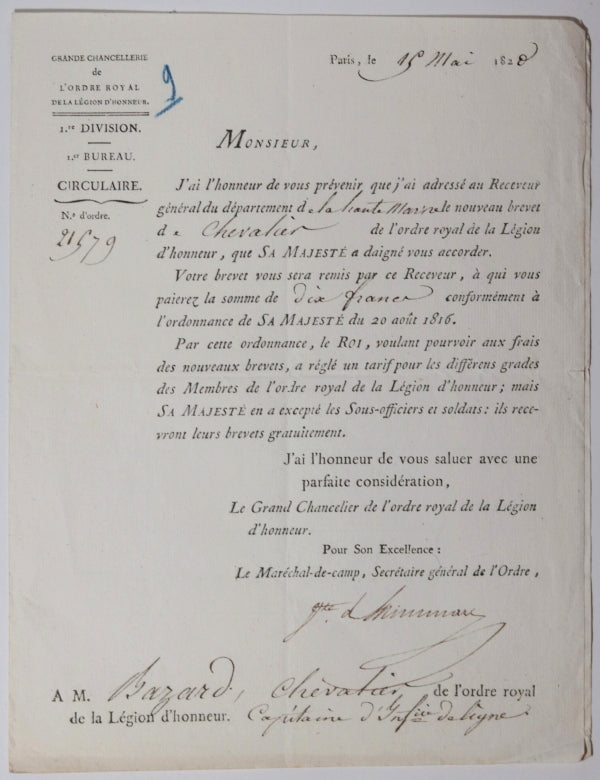 GRANDE CHANCELLERIE
de
L'ORDRE ROYAL
DE LA LÉGION D'HONNEUR.
9
1.re DIVISION.
1.er BUREAU.
CIRCULAIRE.
N.o d'ordre.
21579
Paris, le 15 Mai 1828
MONSIEUR,
J'ai l'honneur de vous prévenir que j'ai adressé au Receveur
général du département de la haute Marne le nouveau brevet
de Chevalier de l'ordre royal de la Légion
d'honneur, que SA MAJESTÉ a daigné vous accorder.
Votre brevet vous sera remis par ce Receveur, à qui vous
paierez la somme de dix francs conformément à
l'ordonnance de SA MAJESTÉ du 20 août 1816.
Par cette ordonnance, le ROI, voulant pourvoir aux frais
des nouveaux brevets, a réglé un tarif pour les différens grades
des Membres de l'ordre royal de la Légion d'honneur; mais
SA MAJESTÉ en a excepté les Sous-officiers et soldats: ils rece-
vront leurs brevets gratuitement.
J'ai l'honneur de vous saluer avec une
parfaite considération,
Le Grand Chancelier de l'ordre royal de la Légion
d'honneur.
Pour Son Excellence:
Le Maréchal-de-camp, Secrétaire général de l'Ordre,
A M. Bazard, Chevalier, de l'ordre royal
de la Légion d'honneur. Capitaine d'Infie de ligne